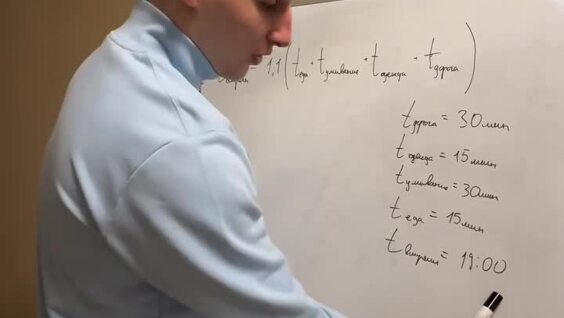 = 1,1 (t еда + t умывание + t одежда + t дорога)
t дорога = 30 мин
t одежда = 15 мин
t умывание = 30 мин
t еда = 15 мин
t встречи = 19:00